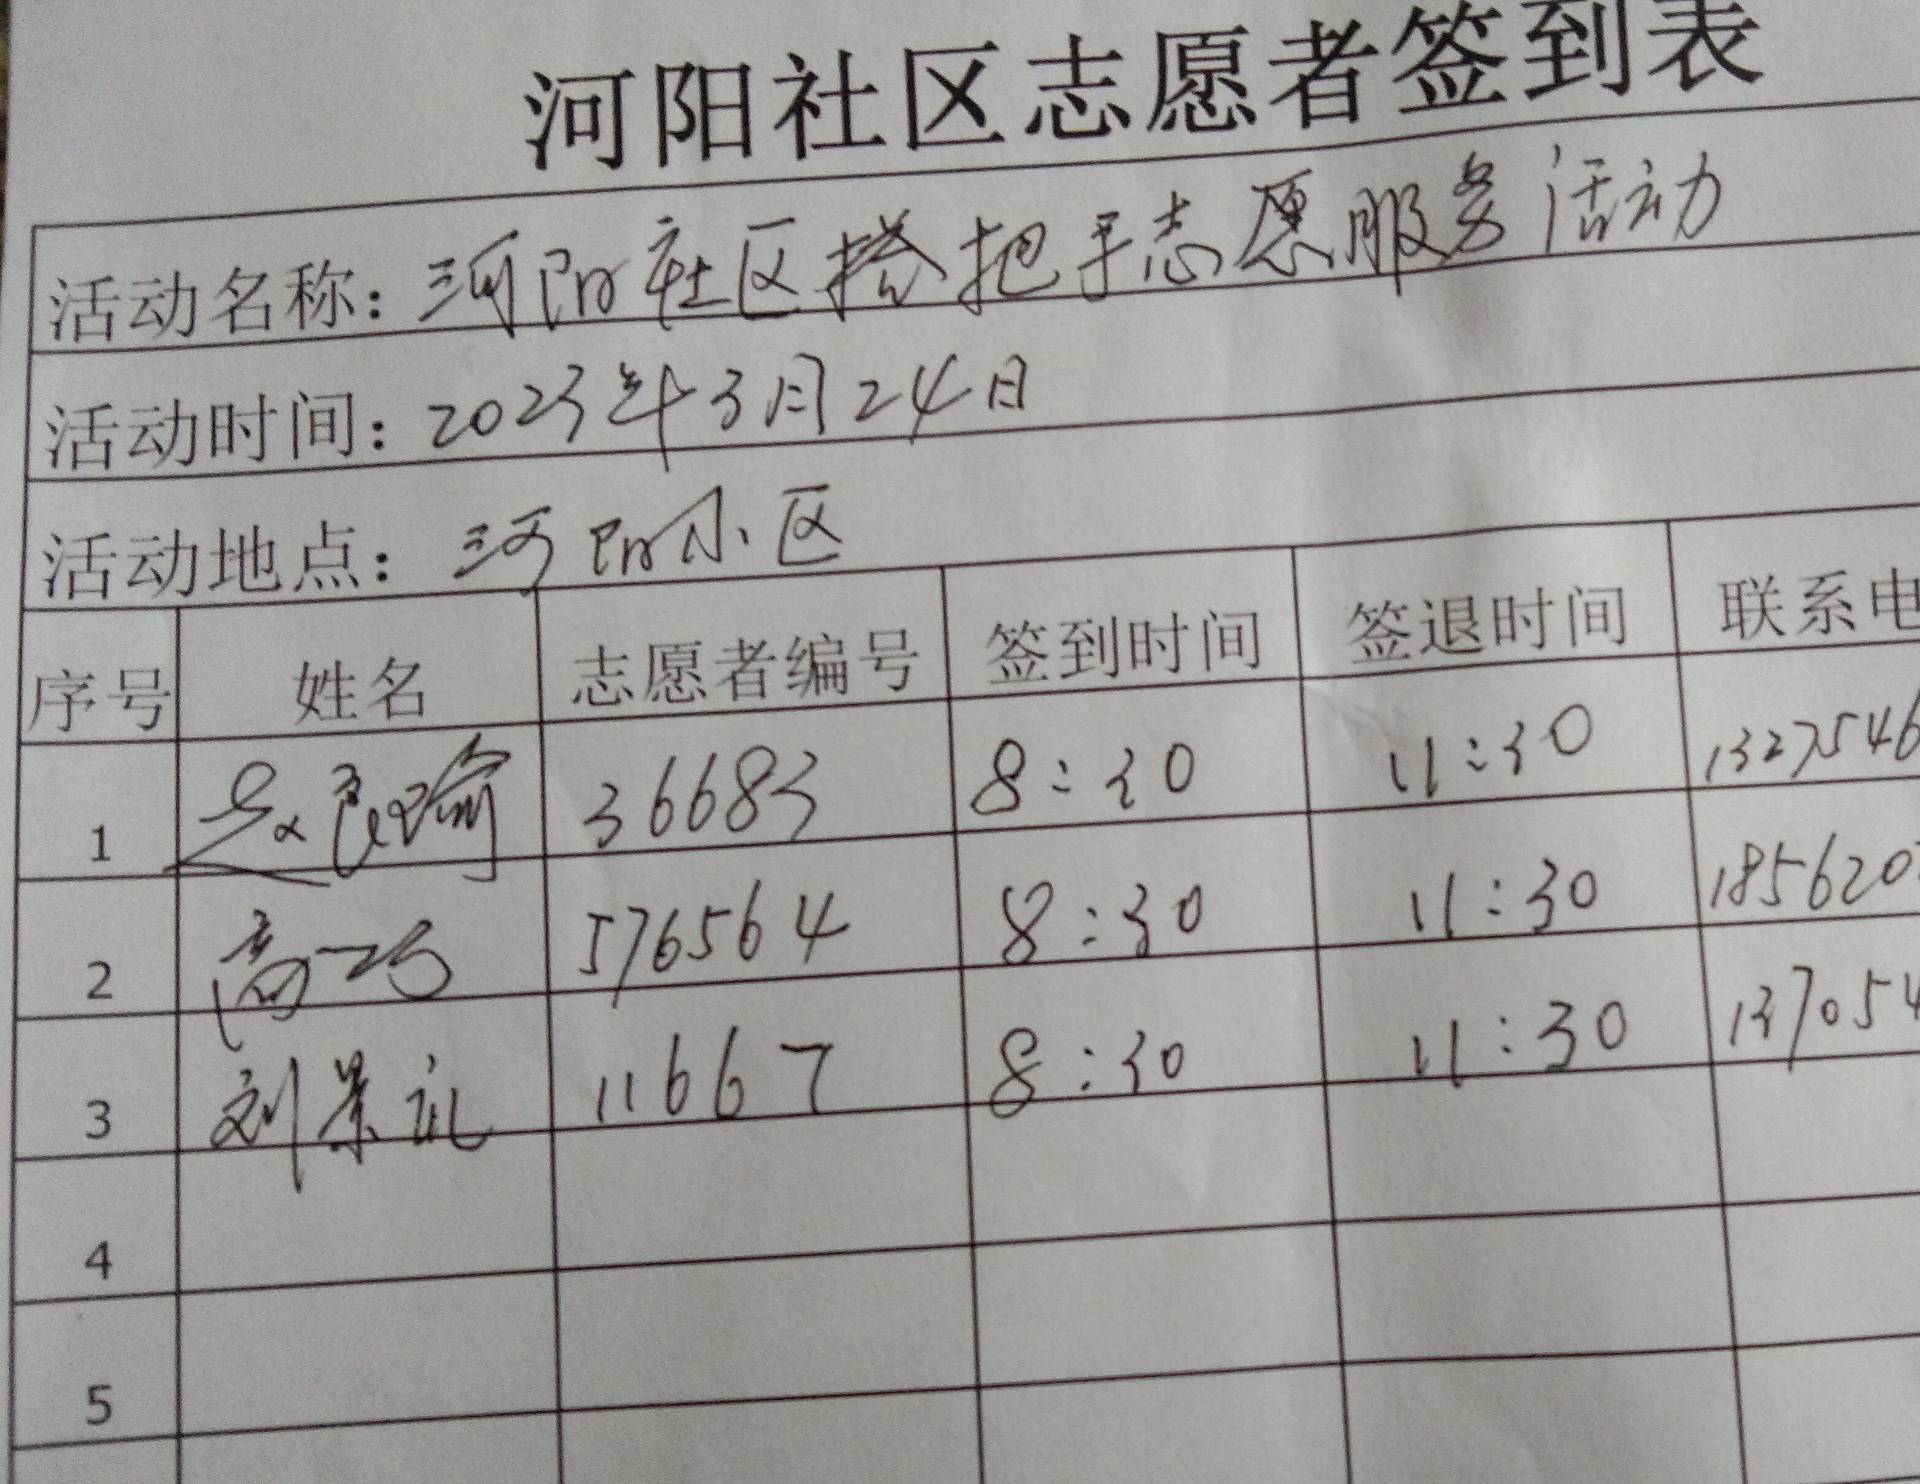 河阳社区志愿者签到表
活动名称：河阳社区搭把手志愿服务活动
活动时间：2023年3月24日
活动地点：河阳小区
序号 姓名 志愿者编号 签到时间 签退时间 联系电
1 36683 8:30 11:30 1327546
2 576564 8:30 11:30 185620
3 刘景礼 11667 8:30 11:30 137054
4
5